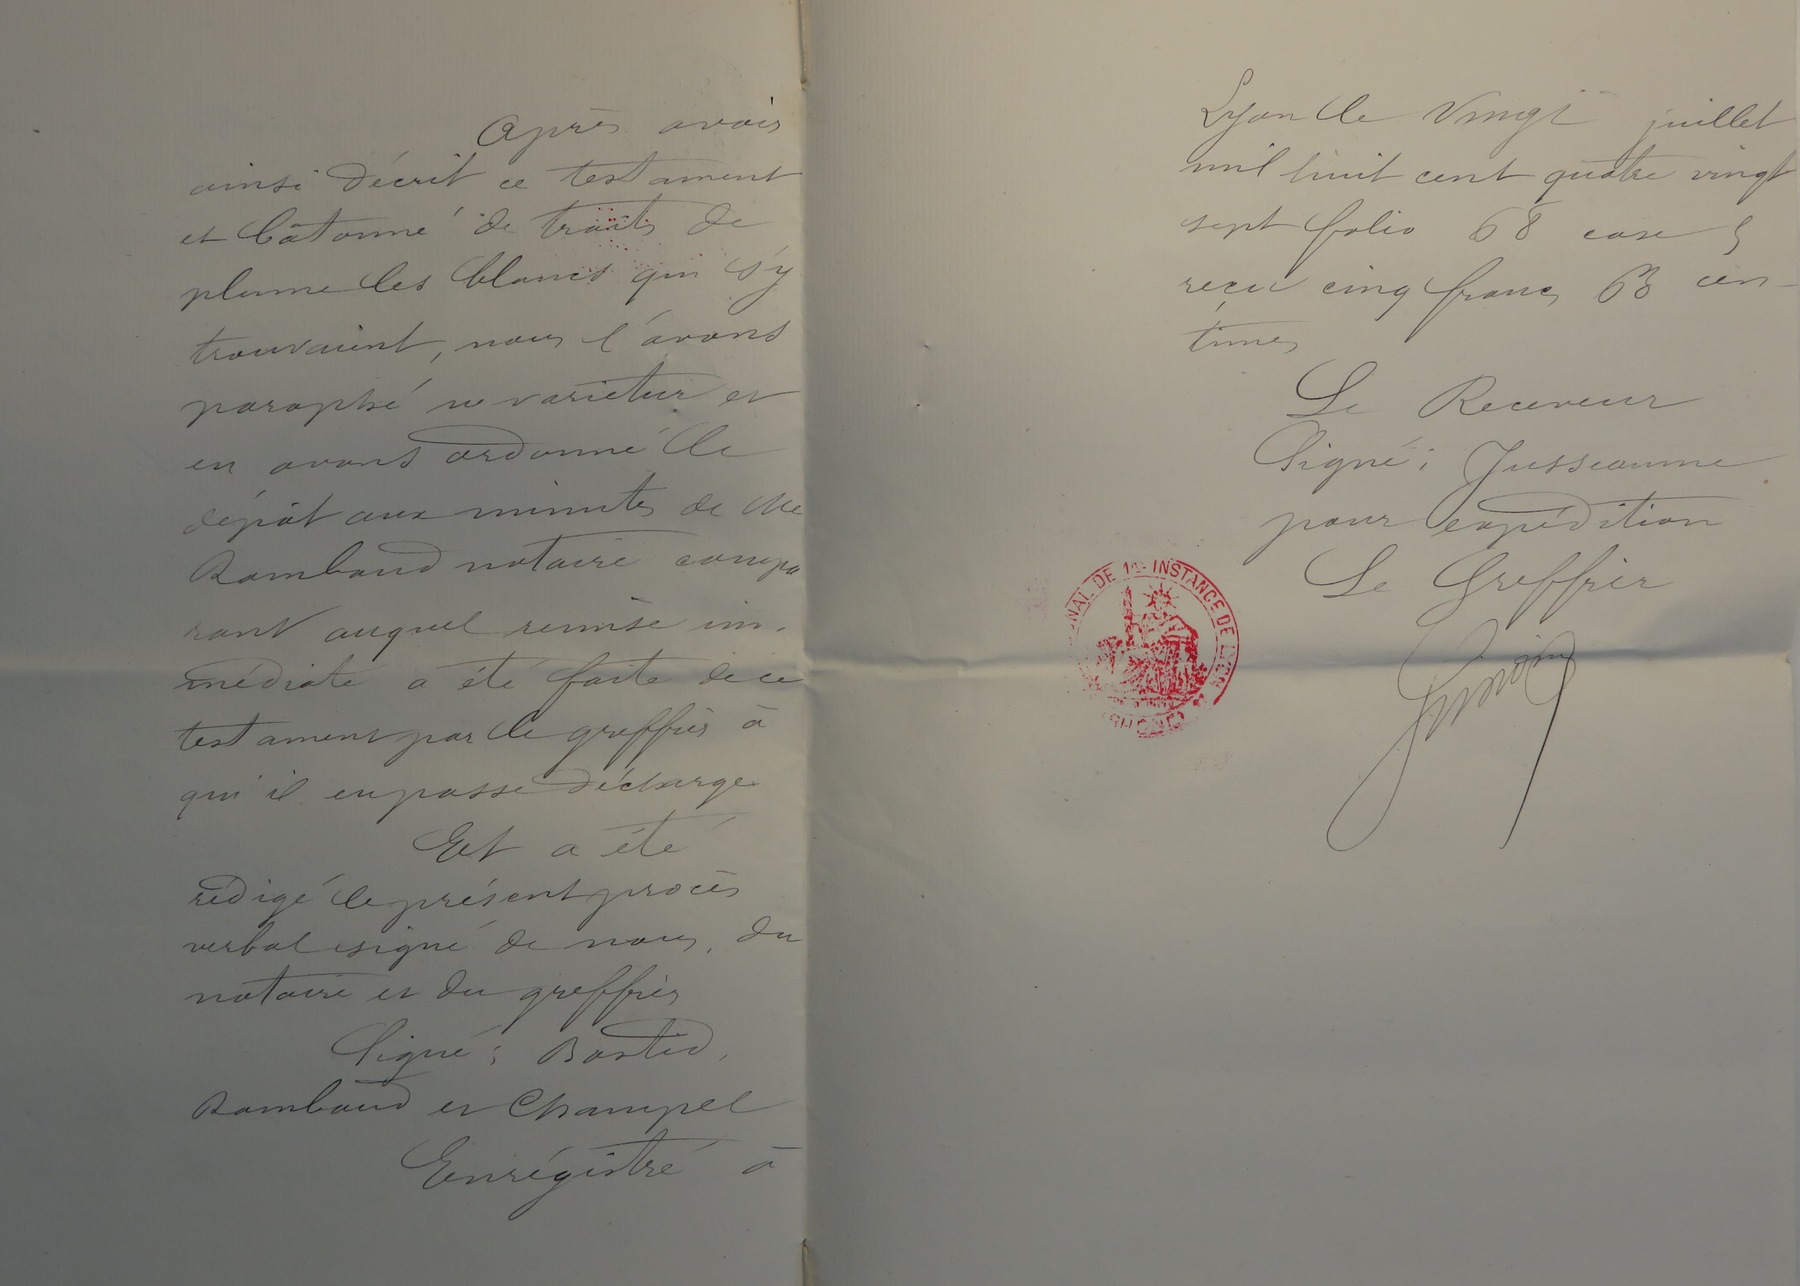 Après avoir
ainsi décrit ce testament
et bâtonné de traits de
plume les blancs qui s'y
trouvaient, nous l'avons
paraphé ne varietur et
en avons ordonné le
dépôt aux minutes de Me
Rambaud notaire compa
rant auquel remise im-
médiate a été faite de ce
testament par le greffier à
qui il en passe décharge
Et a été
rédigé le présent procès
verbal signé de nous, du
notaire et du greffier
Signé: Bastid,
Rambaud et Champel
Enrégistré à
Lyon le vingt juillet
mil huit cent quatre vingt
sept folio 68 case
reçu cinq francs 63 cen-
times
Le Receveur
Signé: Jusseaume
pour expédition
Le Greffier
TRIBUNAL DE 1RE INSTANCE DE LYON
(RHÔNE)